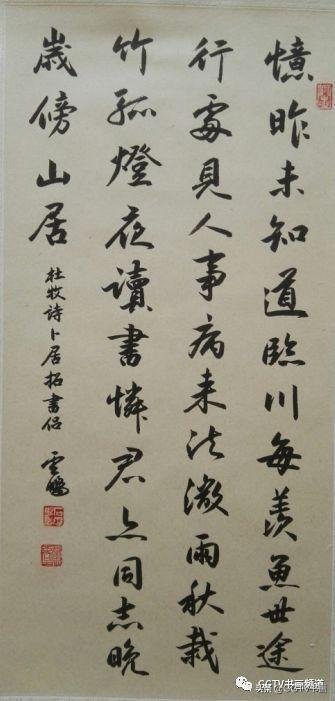 憶昨未知道臨川每羡魚世途
行處見人事病来疏微雨秋栽
竹孤燈夜讀書憐君亦同志晚
歲傍山居
杜牧詩卜居招書侣 雲鵬
CCTV书画频道